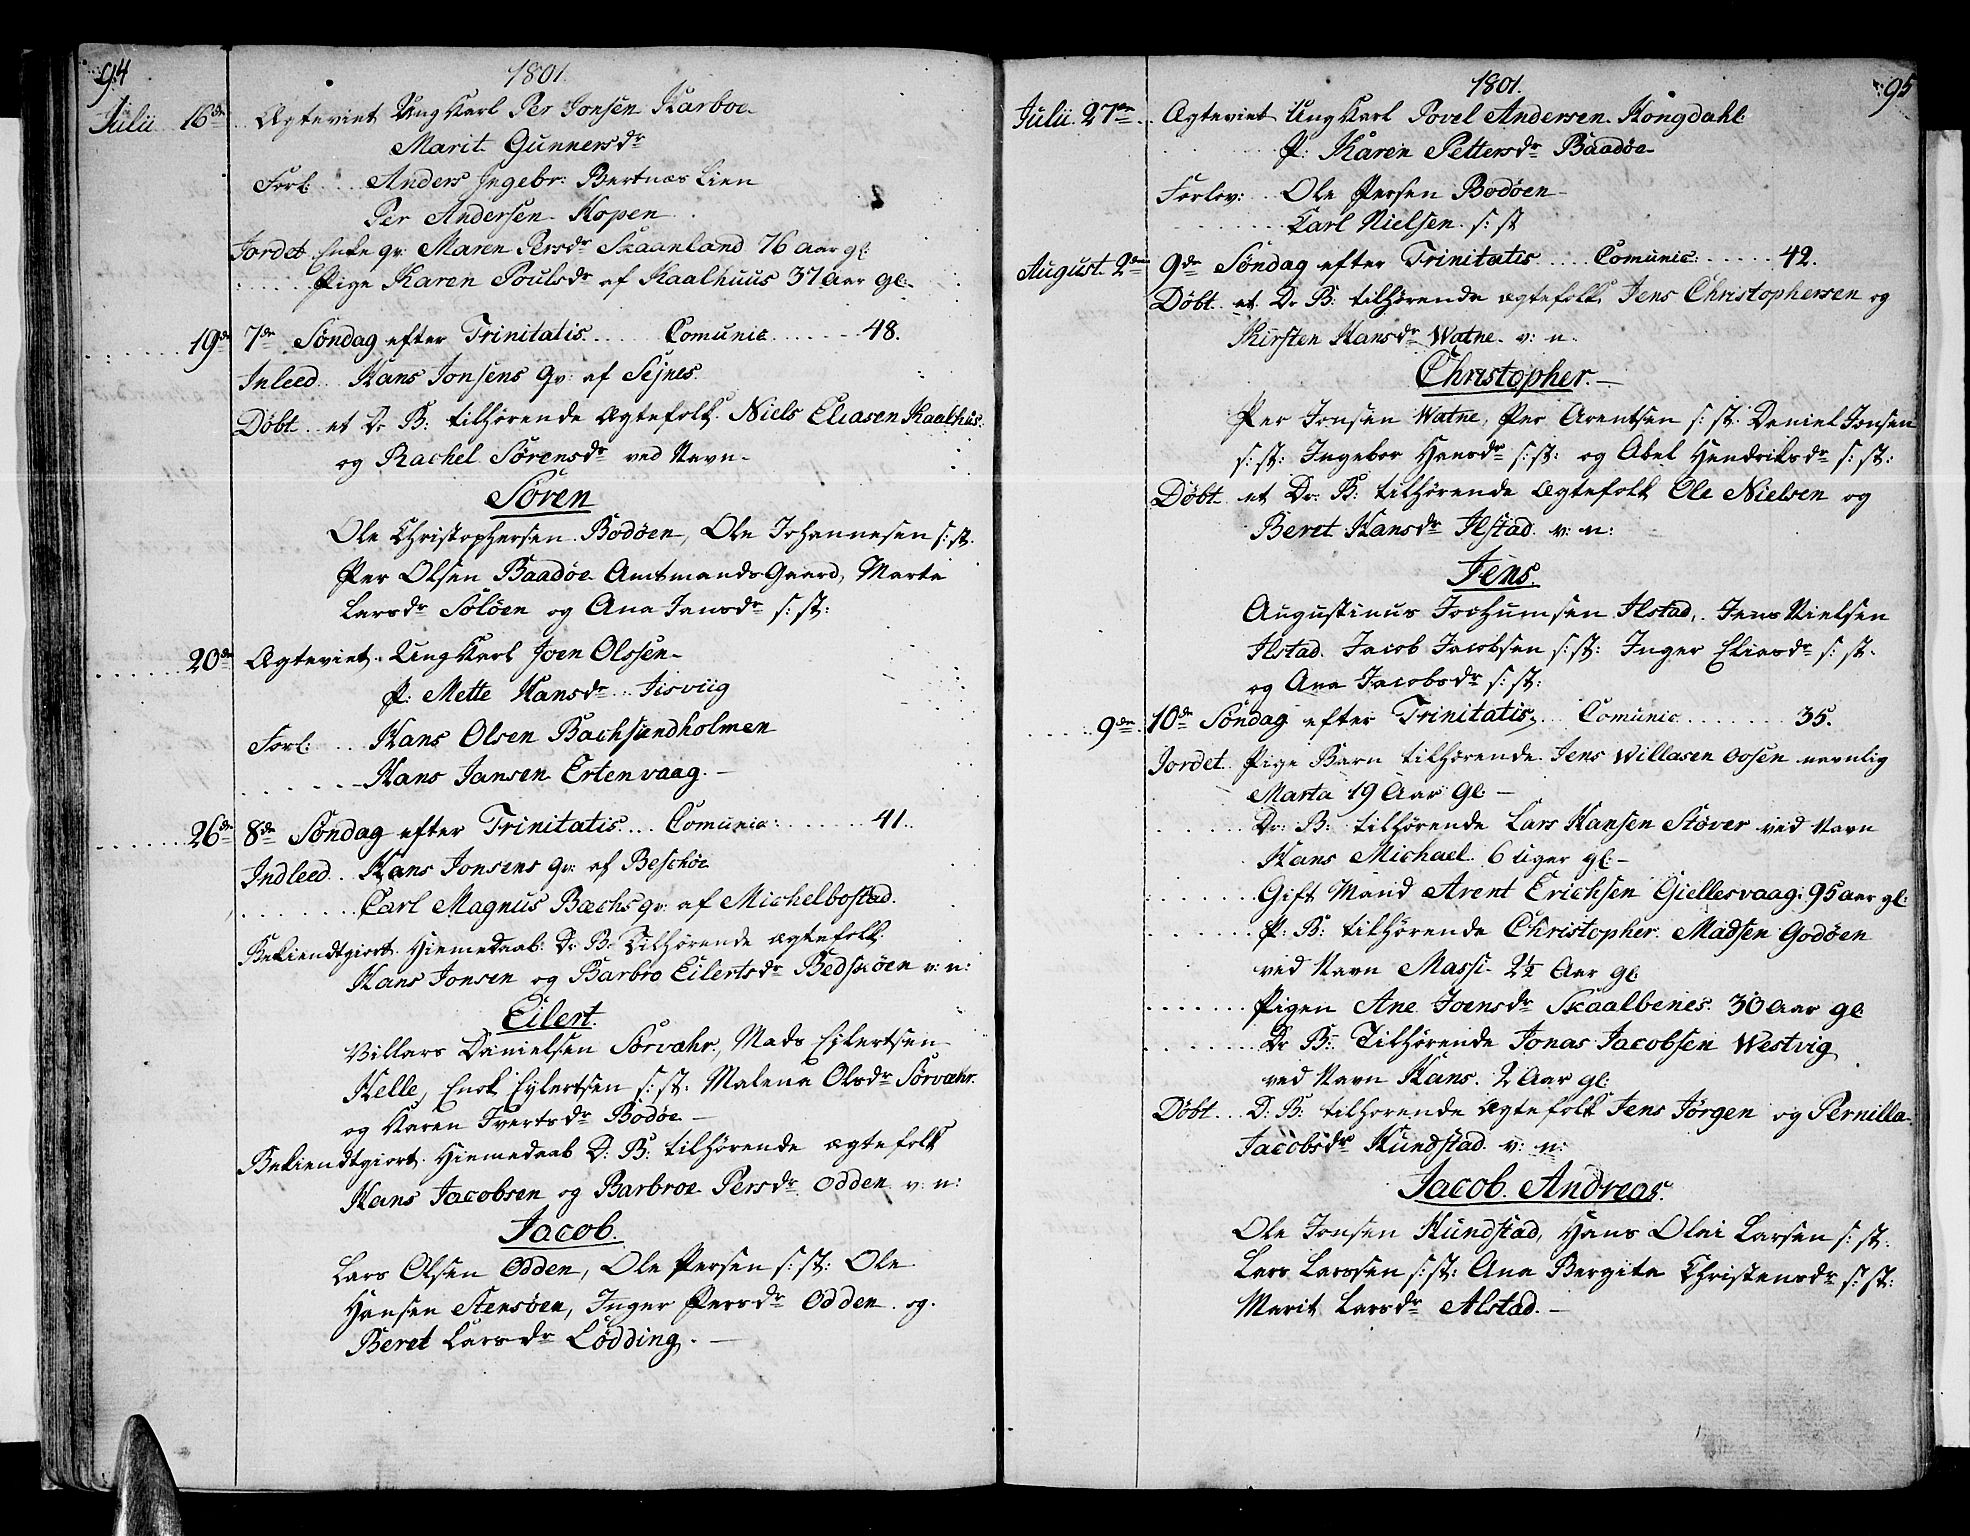 94
1801.
Julii 16de Ægteviet Ung Karl Per Jonsen Karboe
Marit Gunnersdr
Forl: Anders Ingebr: Bertnæs Lien
Per Andersen Hopen
Jordet Enke qv: Maren Persdr Skaanland 76 aar gl:
Pige Karen Poulsdr af Kaalhuus 37 Aar gl:
19de 7de Søndag efter Trinitatis Comunic 48.
Inleed Hans Jonsens qv: af Sejnes
Døbt et Dr B: tilhørende Ægtefolk Niels Eliasen Kaalhus
og Rachel Sørensdr ved Navn
Søren
Ole Christophersen Bodøen, Ole Johannesen s: st.
Per Olsen Baadøe Amtmands Gaard, Marta
Larsdr Soløen og Ana Jansdr s: st:
20de Ægteviet Ung Karl Joen Olssen
P: Mette Hansdr Jisviig
Forl: Hans Olsen Bachsundholmen
Hans Jansen Ertenvaag.
26de 8de Søndag efter Trinitatis Comunic: 41.
Indleed Hans Jonsens qv: af Beschøe
Carl Magnus Bæchs qv: af Michelbostad.
Bekiendtgiort Hiemedaab: D: B: Tilhørende ægtefolk
Hans Jonsen og Barbro Eilertsdr Bedsuøen v: n:
Eilert.
Villars Danielsen Sørvær, Mads Eilertsen
Helle, Enok Eylertsen s: st: Malena Olsdr Sørvær.
og Karen Ivertsdr Bodøe
Bekiendtgiort Hiemedaab D: B: tilhørende ægtefolk
Hans Jacobsen og Barbroe Persdr Odden v: n:
Jacob.
Lars Olsen Odden, Ole Persen s: st: Ole
Hansen Stensøen, Inger Persdr Odden og
Beret Larsdr Lødding.
95
1801.
Julii 27de Ægteviet Ung Karl Povel Andersen Kongdahl
P: Karen Pettersdr Baadøe
Forlov: Ole Persen Bodøen
Carl Nielsen s: st
August 2de 9de Søndag efter Trinitatis Comunic: 42.
Døbt et Dr B: tilhørende ægtefolk Jens Christophersen og
Kirsten Hansdr Watne v: n.
Christopher.
Per Jonsen Watne, Per Arentsen s: st: Daniel Jonsen
s: st: Ingebor Hansdr s: st: og Abel Hendriksdr s: st:
Døbt et Dr: B: tilhørende Ægtefolk Ole Nielsen og
Beret Hansdr Ilstad v: n:
Jens.
Augustinus Jochumsen Ilstad, Jens Nielsen
Ilstad Jacob Jacobsen s: st: Inger Eliasdr s: st.
og Ana Jacobsdr s: st:
9de 10de Søndag efter Trinitatis Comunic 35.
Jordet Pige Barn tilhørende Jens Willasen Oosen navnlig
Marta 19 Aar Gl:
Dr: B: tilhørende Lars Hansen Støver ved Navn
Hans Michael 6 uger gl:
Gift Mand Arent Erichsen Giellesvaag 95 aar gl:
P: B: tilhørende Christopher Madsen Godøen
ved Navn Massi 2½ Aar gl:
Pigen Ane Joensdr Skaalbenes 30 Aar gl:
Dr B: Tilhørende Jonas Jacobsen Westvig
ved Navn Hans. 2 Aar gl:
Døbt D: B: tilhørende ægtefolk Jens Jørgen og Pernilla
Jacobsdr Kundstad v: n:
Jacob Andreas.
Ole Jonsen Kundstad, Hans Olai Larsen s: st.
Lars Larssen s: st: Ana Bergita Christensdr s: st:
Marit Larsdr Alstad.